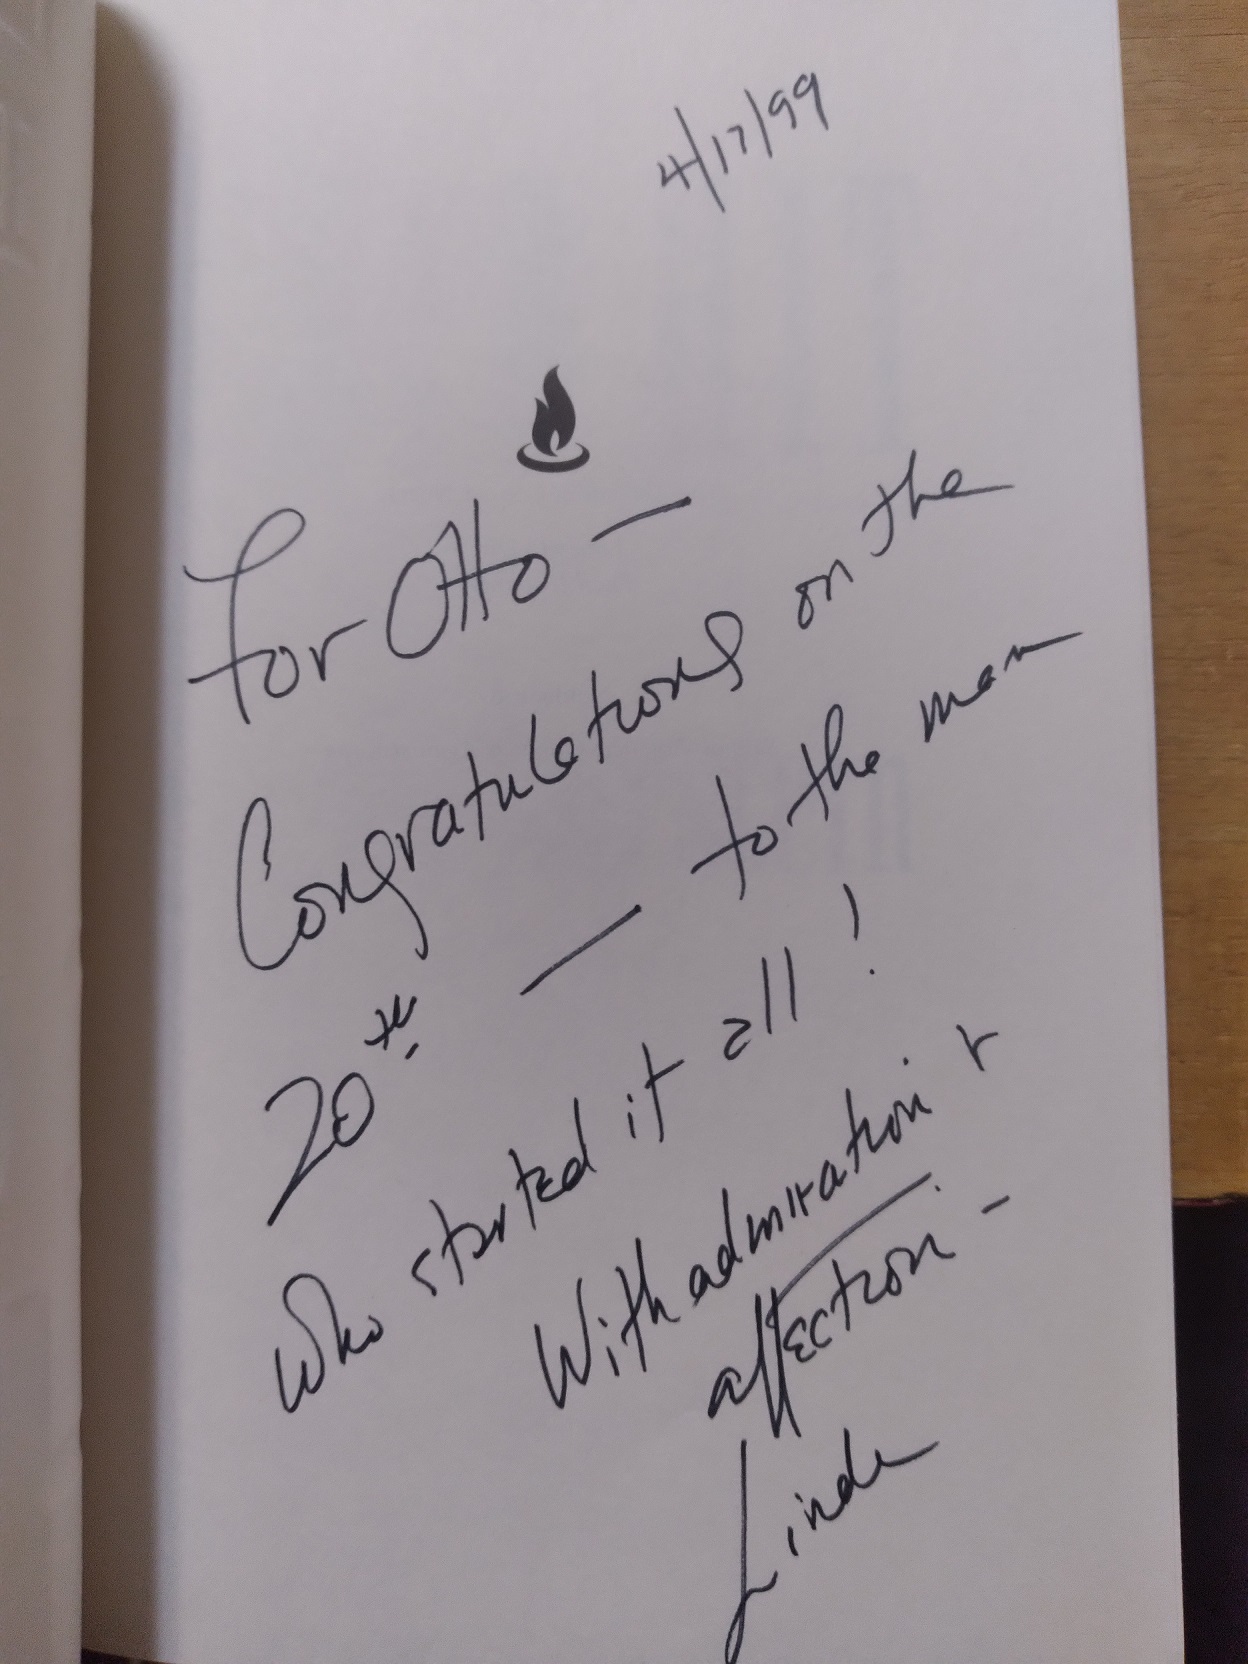 4/17/99
For Otto —
Congratulations on the
20th — to the man
who started it all!
With admiration +
affection —
Linda